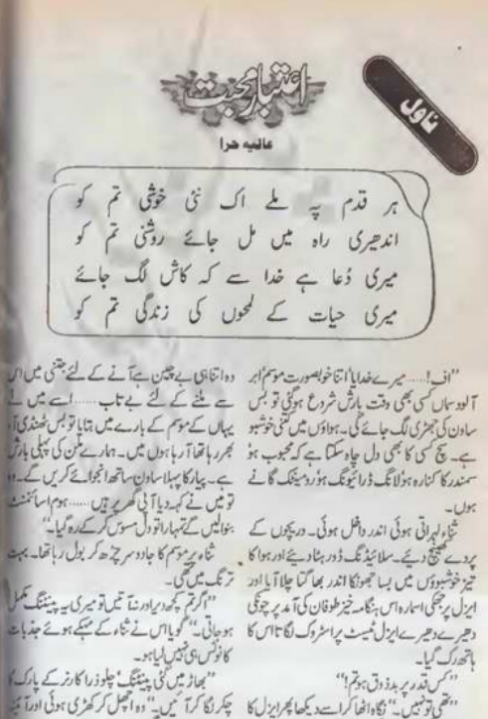 ناول
اعتبارِ محبت
عالیہ حرا
ہر قدم پہ ملے اک نئی خوشی تم کو
اندھیری راہ میں مل جائے روشنی تم کو
میری دُعا ہے خدا سے کہ کاش لگ جائے
میری حیات کے لمحوں کی زندگی تم کو
”اف!..... میرے خدایا‘ اتنا خوبصورت موسم‘ ابر
آلود سماں کسی بھی وقت بارش شروع ہوگئی تو بس
ساون کی جھڑی لگ جائے گی۔ ہواؤں میں کتنی خوشبو
ہے۔ سچ کسی کا بھی دل چاہ سکتا ہے کہ محبوب ہو‘
سمندر کا کنارہ ہو‘ لانگ ڈرائیونگ ہو‘ رومینٹک گانے
ہوں۔
ثناء لہراتی ہوئی اندر داخل ہوئی۔ دریچوں کے
پردے کھینچ دئیے۔ سلائیڈنگ ڈور ہٹا دیئے اور ہوا کا
تیز خوشبوؤں میں بسا جھونکا اندر بھاگتا چلا آیا اور
ایزل پر جھکی اسمارہ اس ہنگامہ خیز طوفان کی آمد پر چونکی
دھیرے دھیرے ایزل ٹیسٹ پر اسٹروک لگاتا اس کا
ہاتھ رک گیا۔
”کس قدر بدذوق ہو تم!“
”تھی تو نہیں۔“ نگاہ اٹھا کر اسے دیکھا پھر ایزل کا
وہ اتنا ہی بے چین ہے آنے کے لئے جتنی میں اس
سے ملنے کے لئے بے تاب ..... اسے میں نے
یہاں کے موسم کے بارے میں بتایا تو بس ٹھنڈی آہ
بھر رہا تھا آ رہا ہوں میں۔ ہمارے ملن کی پہلی بارش
ہے۔ پیار کا پہلا ساون ساتھ انجوائے کریں گے۔ وہ
تو میں نے کہہ دیا آپی گھر پر ہیں ..... ہوم اسائنمنٹ
بنوالیں گے تمہارا تو دل مسوس کر کے رہ گیا۔“
ثناء پر موسم کا جادو سر چڑھ کر بول رہا تھا۔ بہت
ترنگ میں تھی۔
”اگر تم کچھ دیر اور نہ آتیں تو میری یہ پینٹنگ مکمل
ہو جاتی۔“ گویا اس نے ثناء کے مہکے ہوئے جذبات
کا نوٹس ہی نہیں لیا ہو۔
”بھاڑ میں گئی پینٹنگ‘ چلو ذرا کارنر کے پارک کا
چکر لگا کر آئیں۔“ وہ اچھل کر کھڑی ہوئی اور آئینہ